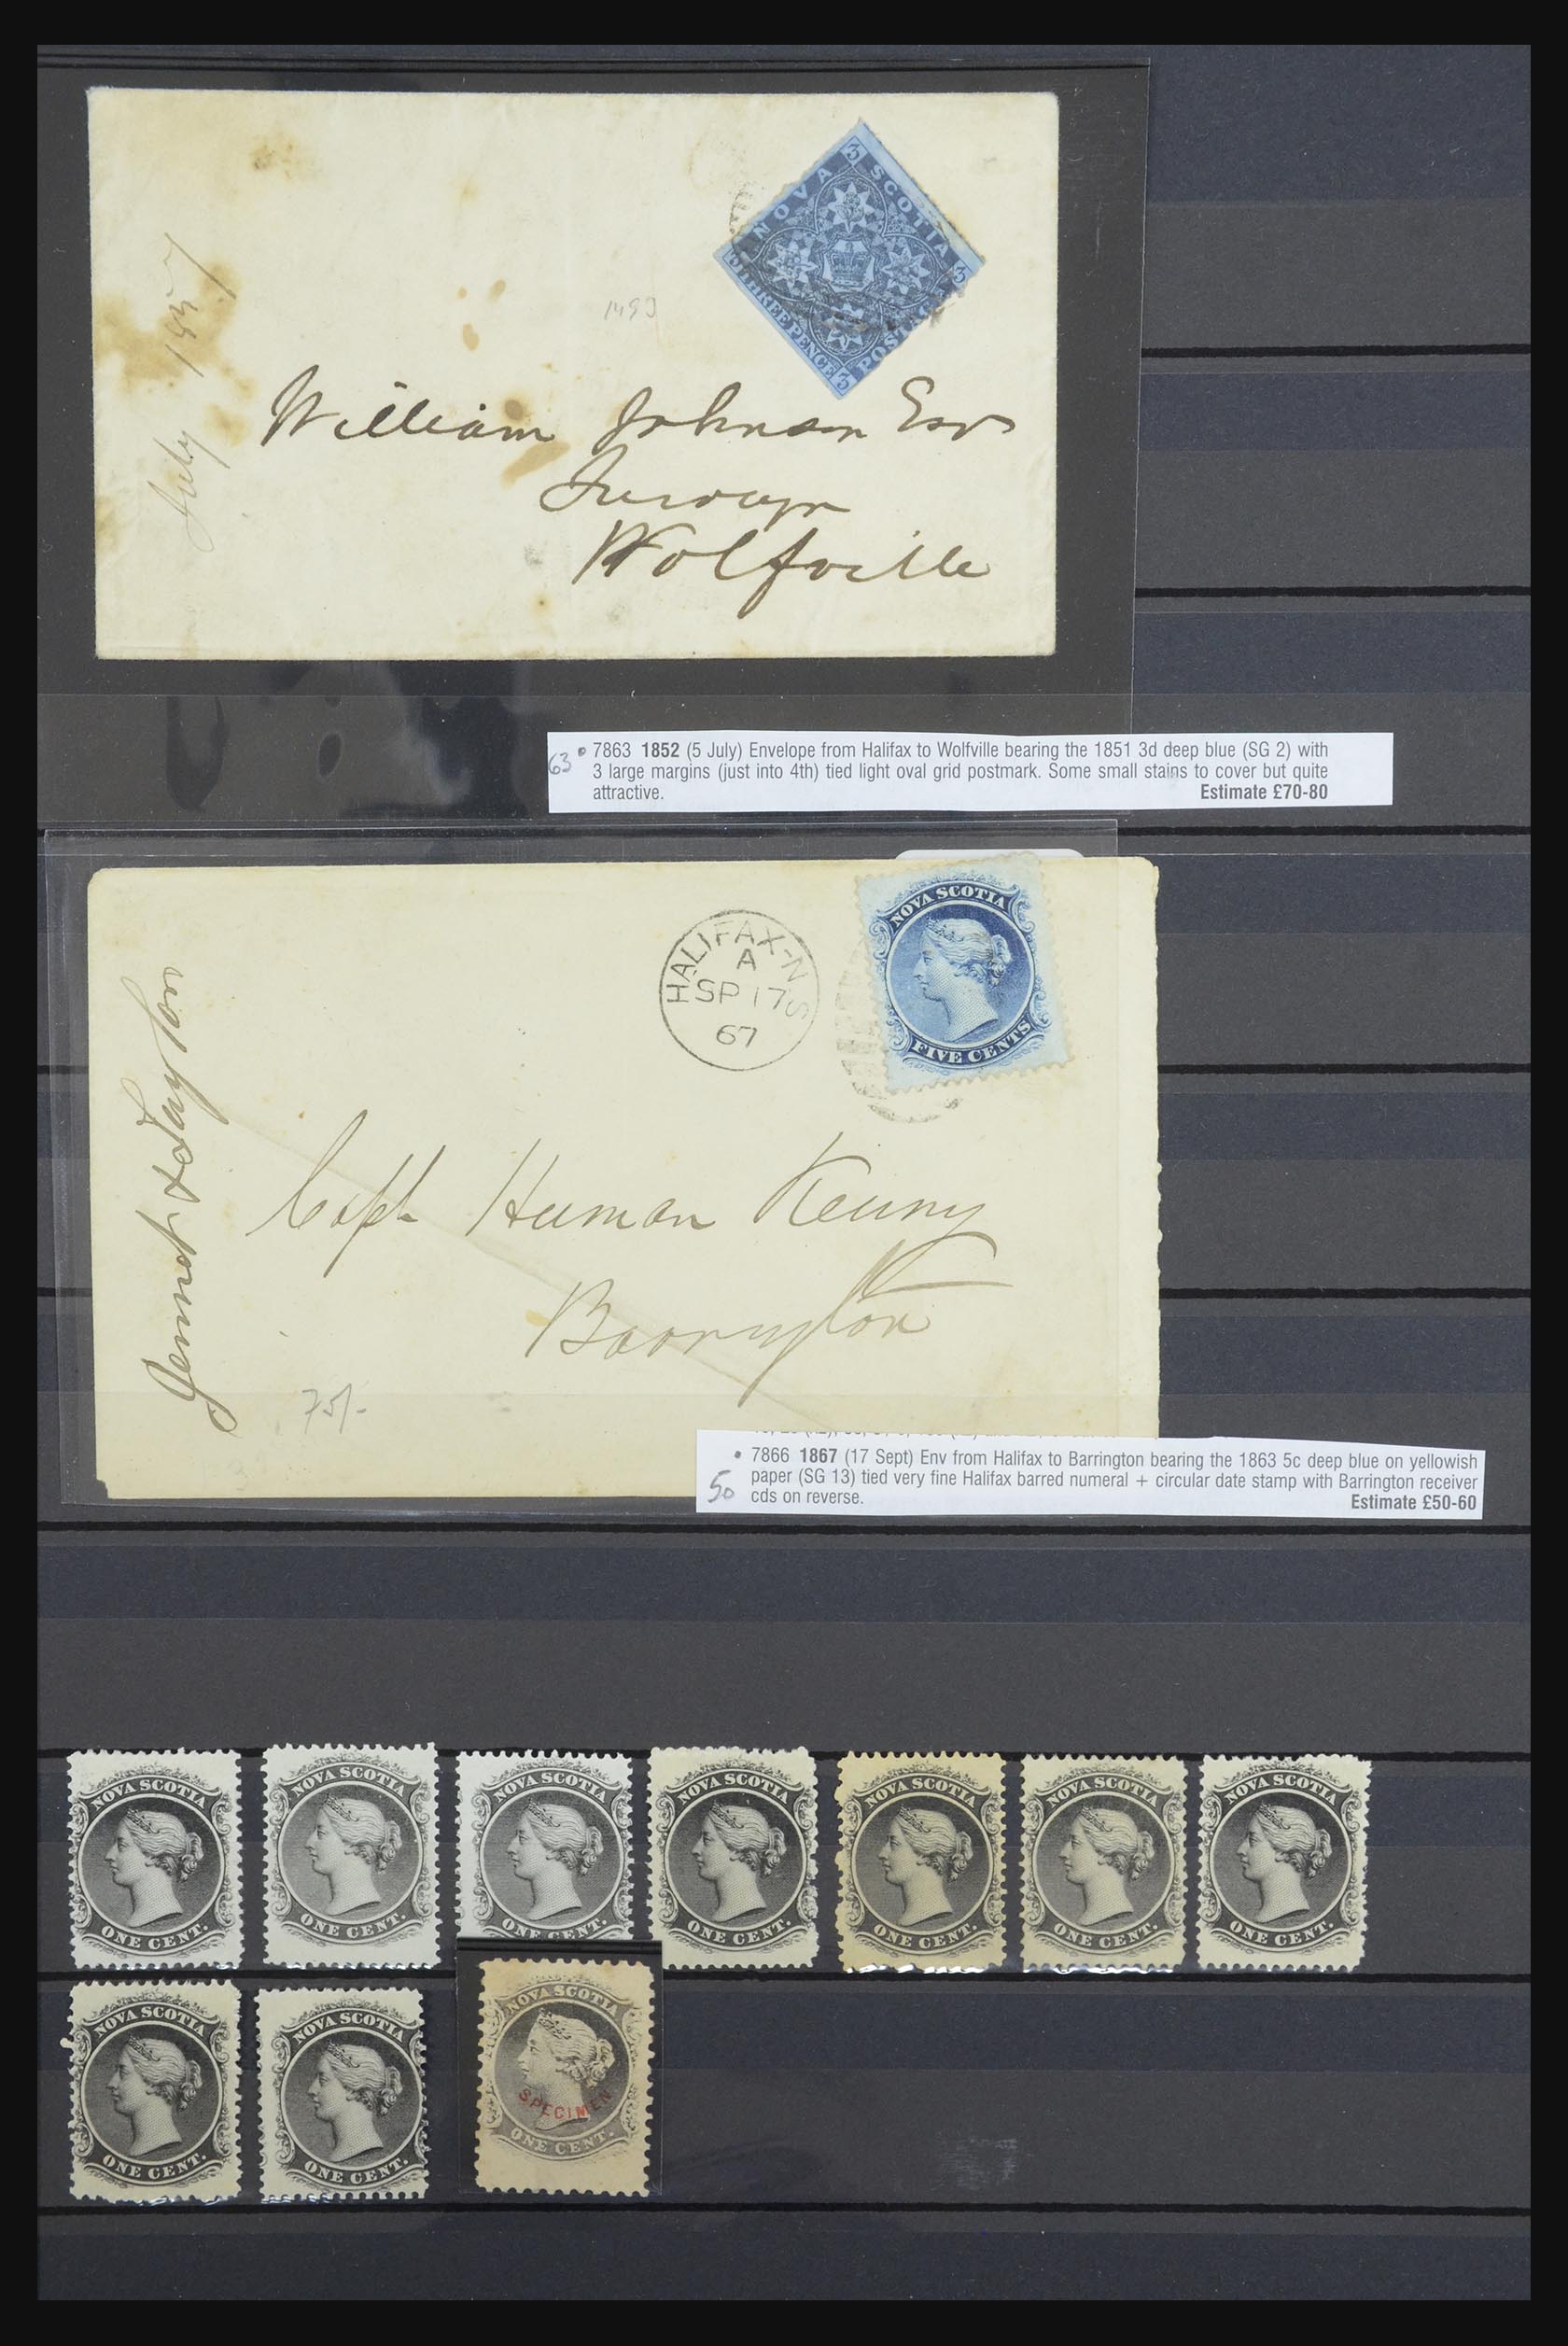 3
NOVA SCOTIA
3
THREE PENCE
3
POSTAGE
July 1857
1493
William Johnson Esqr
Wolfville
63 • 7863 1852 (5 July) Envelope from Halifax to Wolfville bearing the 1851 3d deep blue (SG 2) with
3 large margins (just into 4th) tied light oval grid postmark. Some small stains to cover but quite
attractive. Estimate £70-80
NOVA SCOTIA
FIVE CENTS
HALIFAX-N S
A
SP 17
67
Capt Heman Kenny
Barrington
• 7866 1867 (17 Sept) Env from Halifax to Barrington bearing the 1863 5c deep blue on yellowish
paper (SG 13) tied very fine Halifax barred numeral + circular date stamp with Barrington receiver
50 cds on reverse. Estimate £50-60
NOVA SCOTIA
ONE CENT.
NOVA SCOTIA
ONE CENT.
NOVA SCOTIA
ONE CENT.
NOVA SCOTIA
ONE CENT.
NOVA SCOTIA
ONE CENT.
NOVA SCOTIA
ONE CENT.
NOVA SCOTIA
ONE CENT.
NOVA SCOTIA
ONE CENT.
NOVA SCOTIA
ONE CENT.
NOVA SCOTIA
SPECIMEN
ONE CENT.